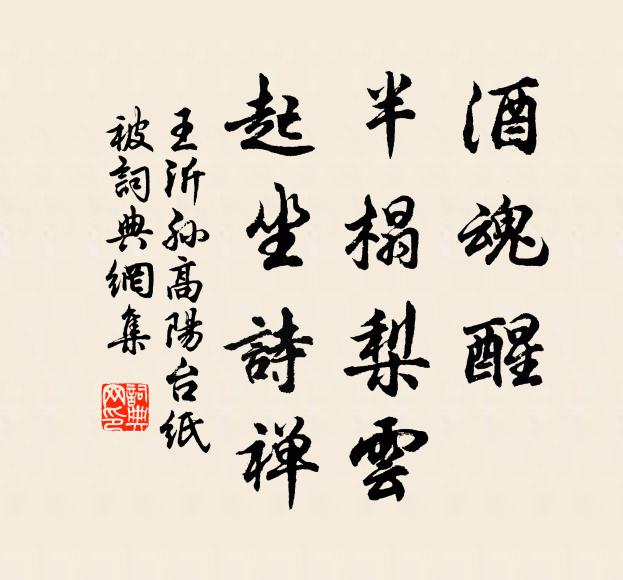 酒魂醒
半榻梨雲
起坐詩禅
王沂孙高陽台紙
被詞典網集
詞典
网印